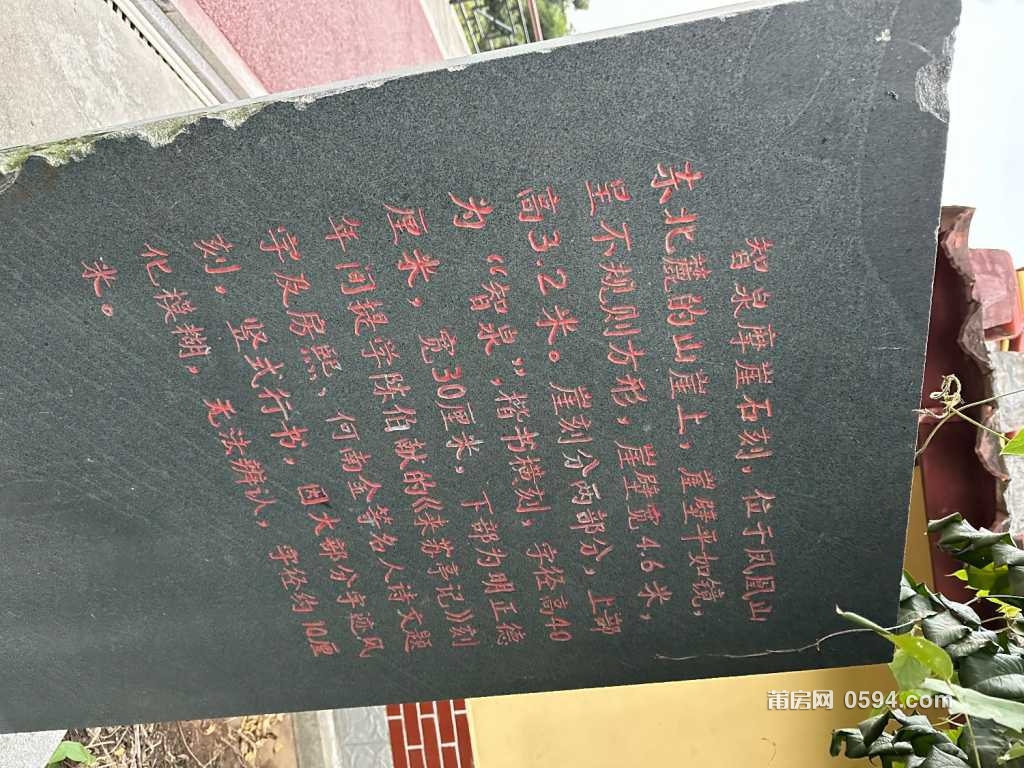 智泉摩崖石刻，位于凤凰山
东北麓的山崖上，崖壁平如镜，
呈不规则方形，崖壁宽4.6米，
高3.2米。崖刻分两部分，上部
为“智泉”，楷书横刻，字径高40
厘米，宽30厘米，下部为明正德
年间提学陈伯献的《来苏亭记》刻
字及房熙、何南金等名人诗文题
刻，竖式行书，因大部分手迹风
化模糊，无法辨认，字径约10厘
米。
莆房网 0594.com